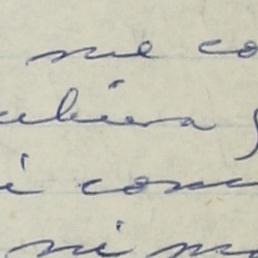 me co
ubiera
i com
ni